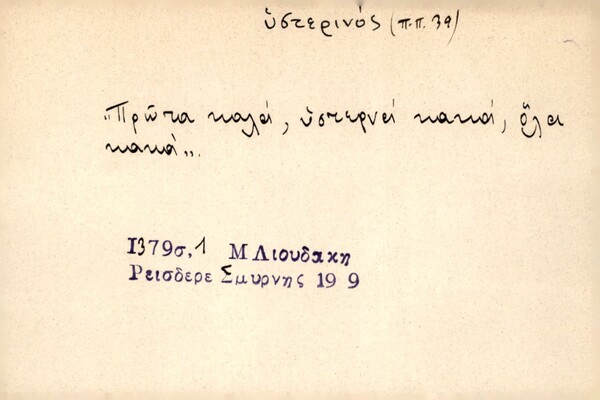 ὑστερινός (π.π. 39)
„Πρῶτα καλά, ὑστερνά κακά, ὅλα
κακά„.
1379σ, 1 Μ Λιουδακη
Ρεισδερε Σμυρνης 19 9